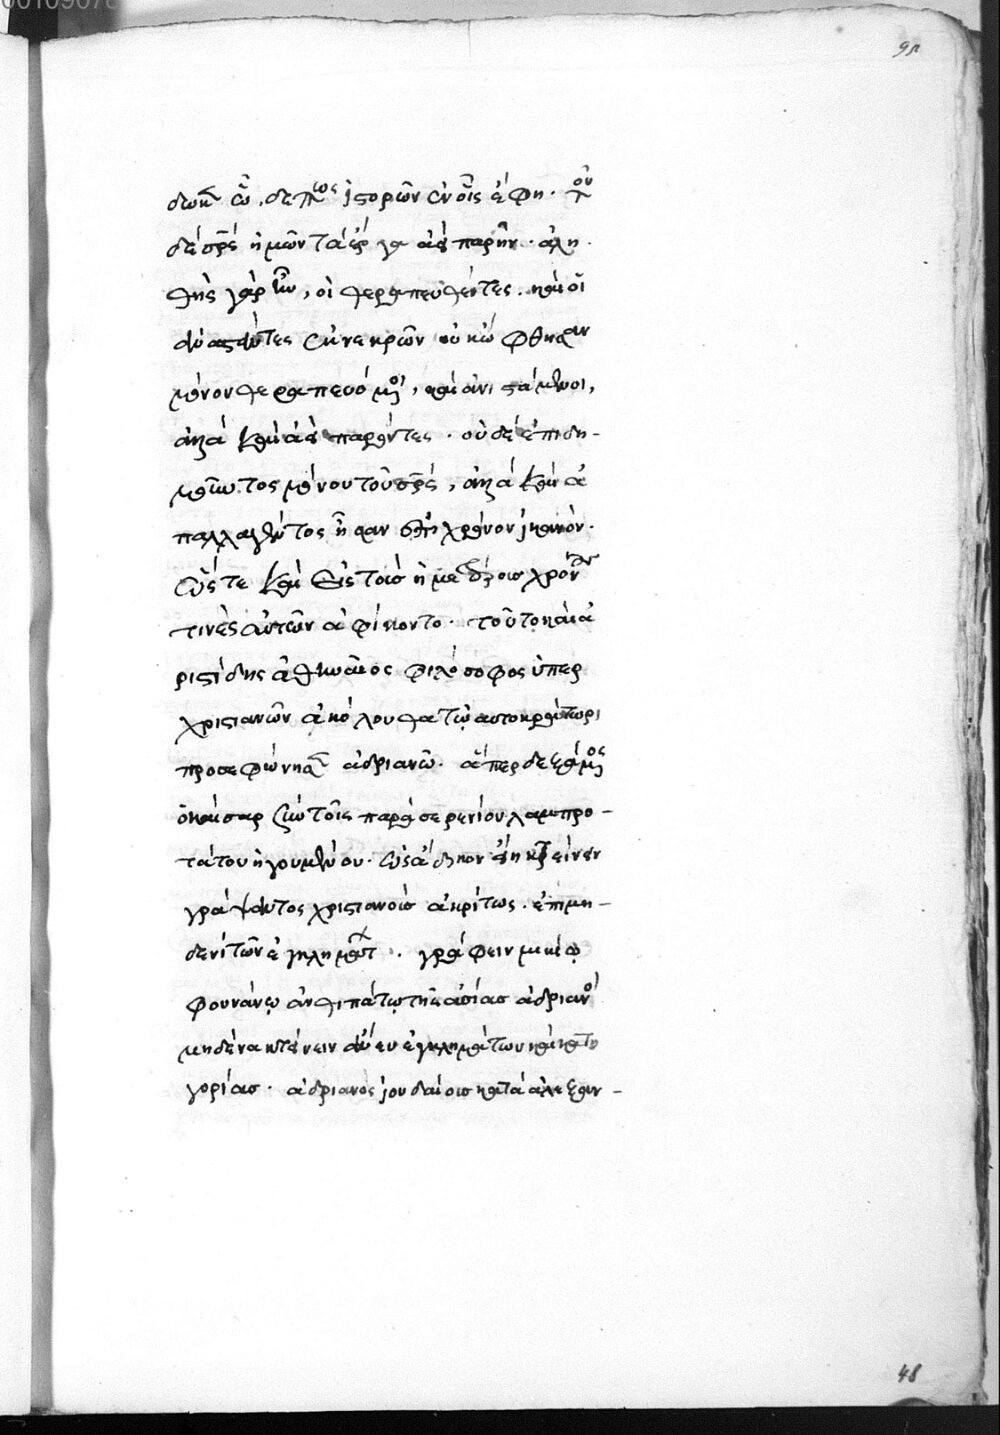 95
δωκεν ὧδέ πως ἱστορῶν ἐν οἷς ἔφη. τοῦ
δὲ σρς ἡμῶν τὰ ἔργα ἀεὶ παρῆν. ἀλη
θῆς γὰρ ἦν, οἱ θεραπευθέντες. καὶ οἱ
ἀναστάντες ἐκ νεκρῶν οὐκ ὤφθησαν
μόνον θεραπευόμενοι, καὶ ἀνιστάμενοι,
ἀλλὰ καὶ ἀεὶ παρόντες. οὐδὲ ἐπιδη-
μοῦντος μόνου τοῦ σρς, ἀλλὰ καὶ ἀ
παλλαγέντος ἦσαν ἐπὶ χρόνον ἱκανόν.
ὥστε καὶ εἰς τοὺς ἡμετέρους χρόνους
τινὲς αὐτῶν ἀφίκοντο. τοῦτο καὶ ἀ
ριστίδης ἀθηναῖος φιλόσοφος ὑπὲρ
χριστιανῶν ἀκόλουθα τῷ αὐτοκράτορι
προσεφώνησεν ἀδριανῷ. ἅπερ δεξάμενος
ὁ καῖσαρ σὺν τοῖς παρὰ σερενίου λαμπρο-
τάτου ἡγουμένου. ὡς ἄδικον εἴη κτείνειν
γράψαντος χριστιανοὺς ἀκρίτως. ἐπὶ μη-
δενὶ τῶν ἐγκλημάτων. γράφειν μικίῳ
φουνάνῳ ἀνθιπάτῳ τῆς ἀσίας ἀδριανὸς
μηδένα κτένειν ἄνευ ἐγκλημάτων καὶ κατη
γορίας. ἀδριανὸς ἰουδαίους κατὰ ἀλεξαν-
48